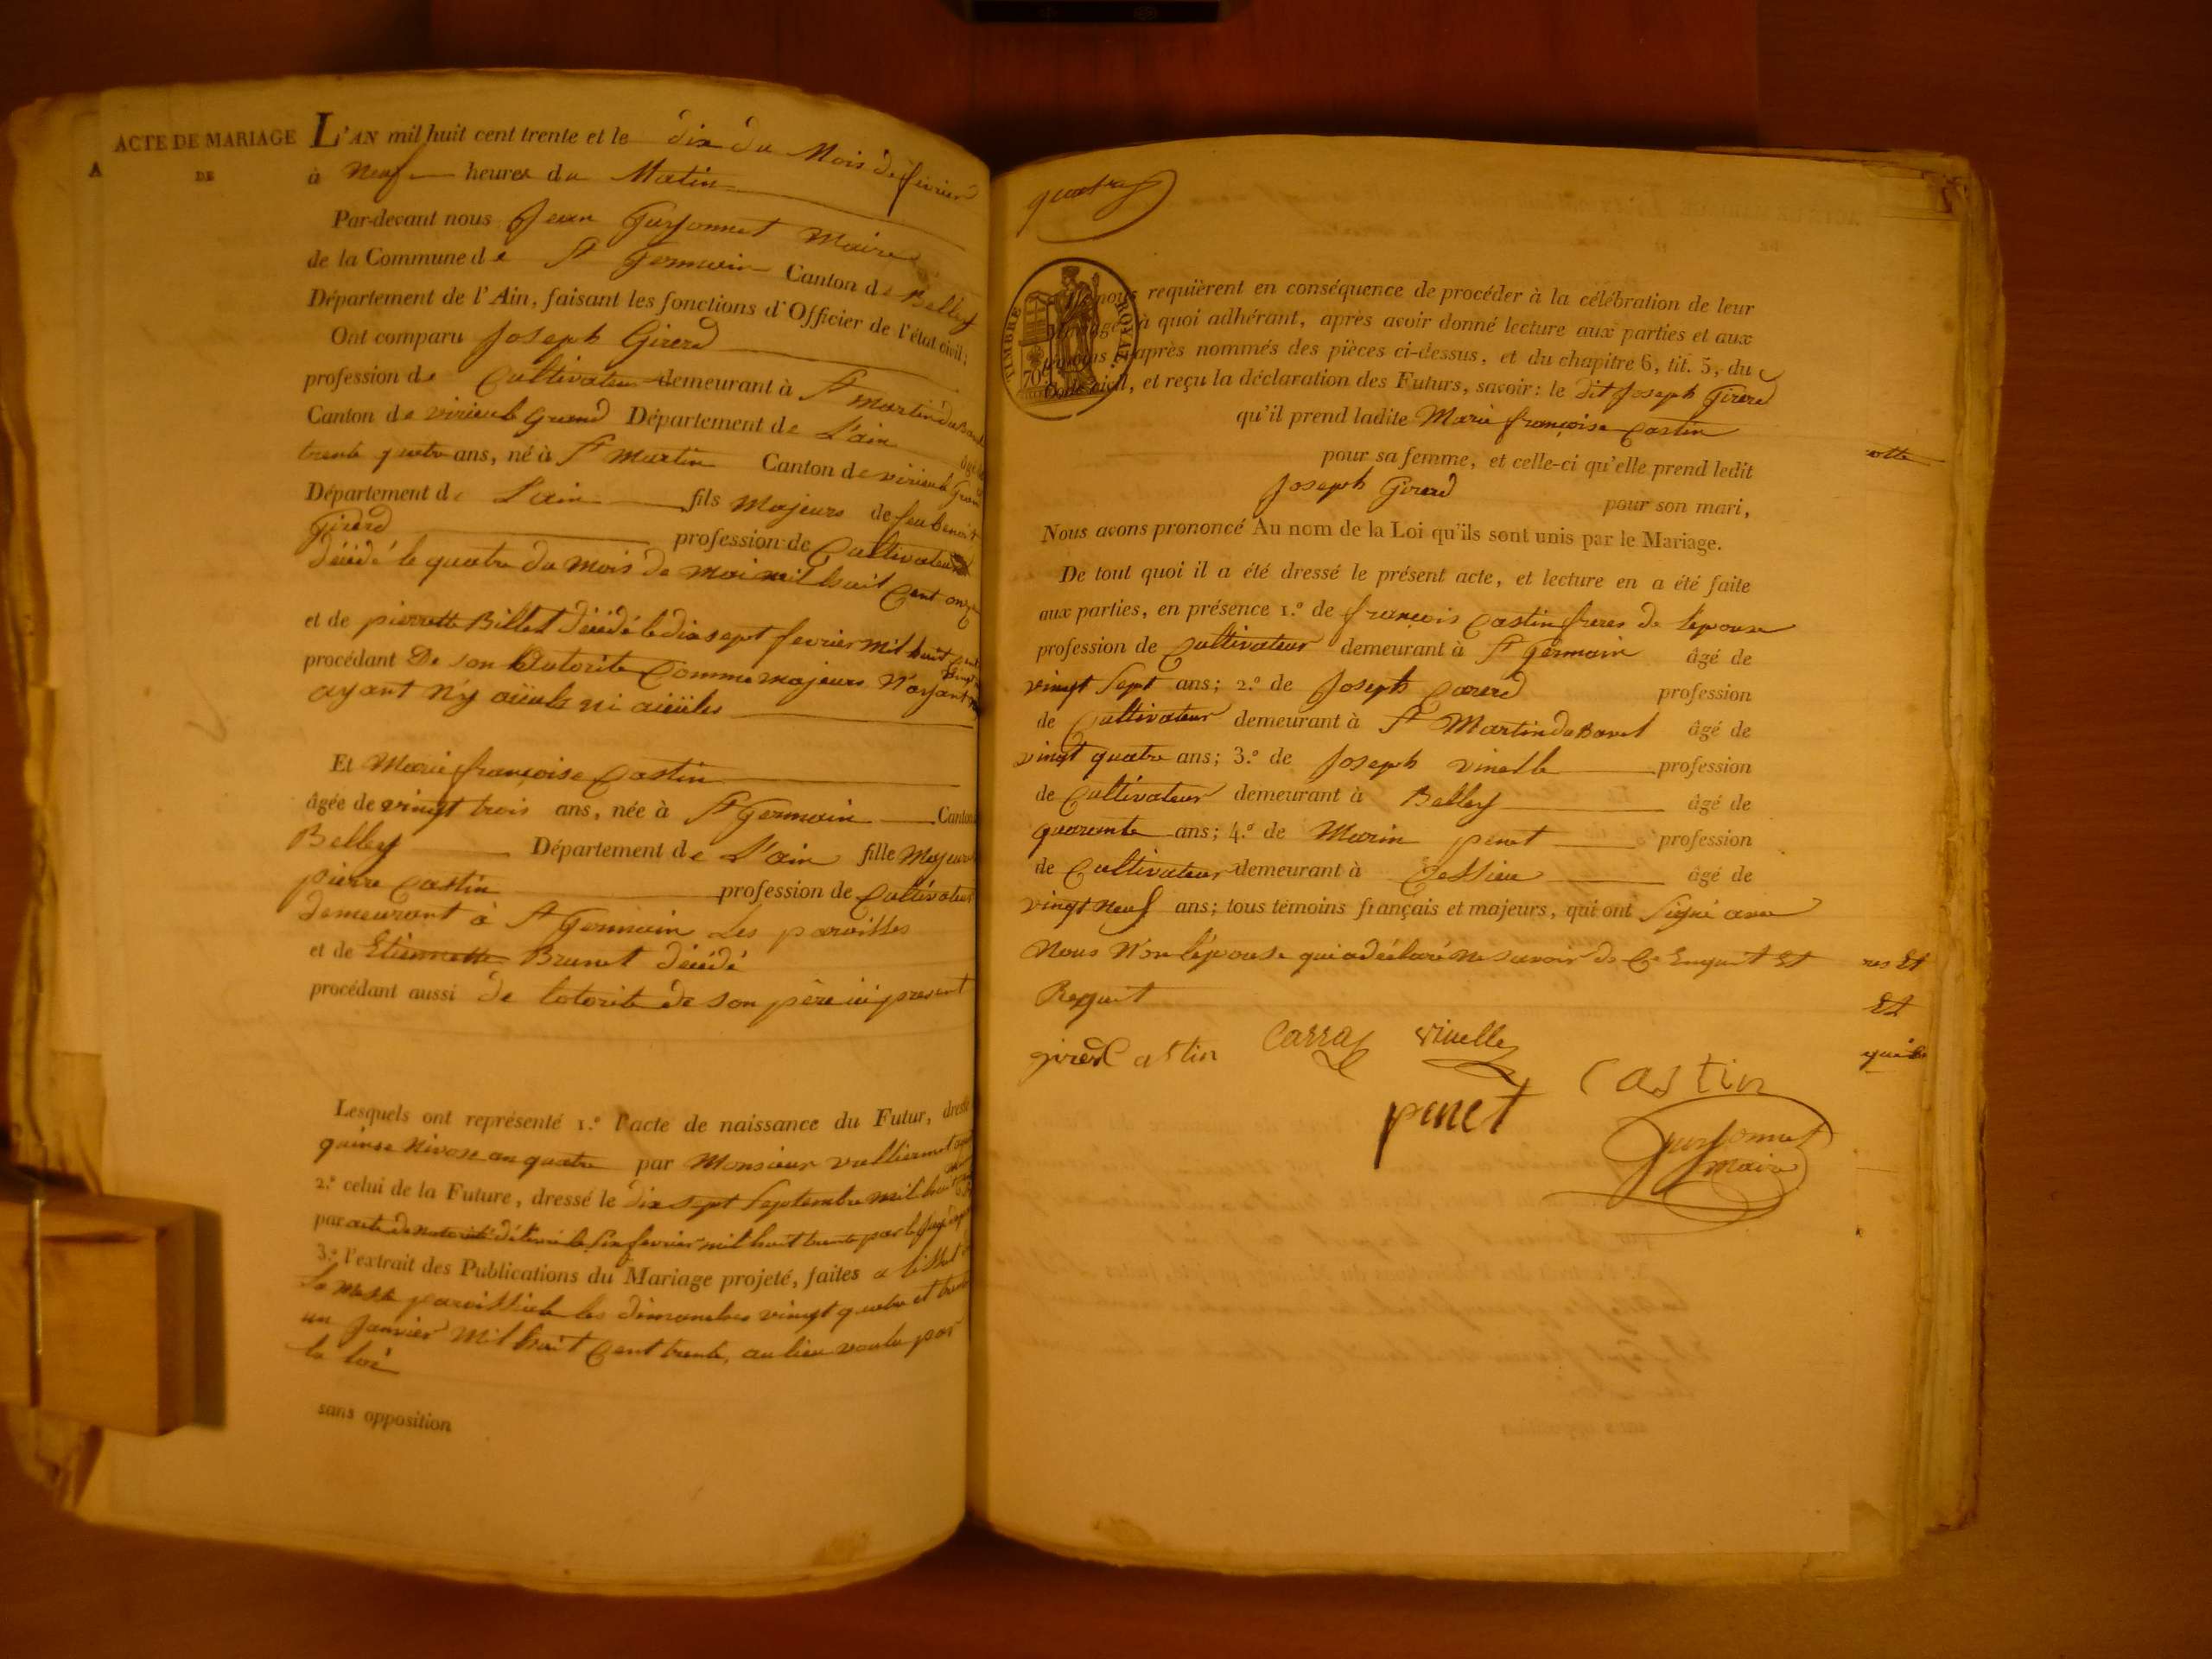 ACTE DE MARIAGE
A DE
L'AN mil huit cent trente et le dix du Mois de fevrier
à Neuf heures du Matin
Par-devant nous Jean Maire
de la Commune de St Germain Canton de Belley
Département de l'Ain, faisant les fonctions d'Officier de l'état civil;
Ont comparu Joseph Girerd
profession de Cultivateur demeurant à St Martin du
Canton de virieu le Grand Département de L'ain âgé de
trente quatre ans, né à St Martin Canton de virieu le Gran
Département de L'ain fils Majeure de feu benoit
Girerd profession de Cultivateur
décédé le quatre du mois de mai mil huit Cent onze
et de pierrette Billet décédé le dix sept fevrier mil huit Cent
procédant De son Autorite Comme majeure N'ayant
ayant n'y aïeuls ni aïeules
Et Marie françoise Castin
âgée de vingt trois ans, née à St Germain Canton
Belley Département de L'ain fille Majeure
pierre Castin profession de Cultivateur
demeurant à St Germain Les paroisses
et de Etiennette Brunet décédé
procédant aussi de lotorite de son père ici present
Lesquels ont représenté 1.º l'acte de naissance du Futur, dressé
quinse Nivose an quatre par Monsieur
2.º celui de la Future, dressé le dix sept Septembre mil huit
par acte de notorité délivré le six fevrier mil huit trente par le juge
3.º l'extrait des Publications du Mariage projeté, faites a lissue
la messe paroissiale les dimanches vingt quatre et trente
un Janvier Mil huit Cent trente, au lieu voulu par
la loi
sans opposition
quatre
TIMBRE ROYAL
70 c
Ils nous requièrent en conséquence de procéder à la célébration de leur
Mariage, à quoi adhérant, après avoir donné lecture aux parties et aux
témoins ci-après nommés des pièces ci-dessus, et du chapitre 6, tit. 5, du
Code civil, et reçu la déclaration des Futurs, savoir: le dit Joseph Girerd
qu'il prend ladite Marie françoise Castin
pour sa femme, et celle-ci qu'elle prend ledit
Joseph Girerd pour son mari,
Nous avons prononcé Au nom de la Loi qu'ils sont unis par le Mariage.
De tout quoi il a été dressé le présent acte, et lecture en a été faite
aux parties, en présence 1.º de françois Castin freres de lepouse
profession de Cultivateur demeurant à St Germain âgé de
vingt Sept ans; 2.º de Joseph profession
de Cultivateur demeurant à St Martin du Bavel âgé de
vingt quatre ans; 3.º de Joseph vinelle profession
de Cultivateur demeurant à Belley âgé de
quarente ans; 4.º de Marin penet profession
de Cultivateur demeurant à âgé de
vingt Neuf ans; tous témoins français et majeurs, qui ont Signé avec
Nous Non lépouse qui a déclaré Ne savoir de Ce Enquit Et
Requit
girerd Castin Carra vinelle
Castin
penet
maire
otte
res Et
Et